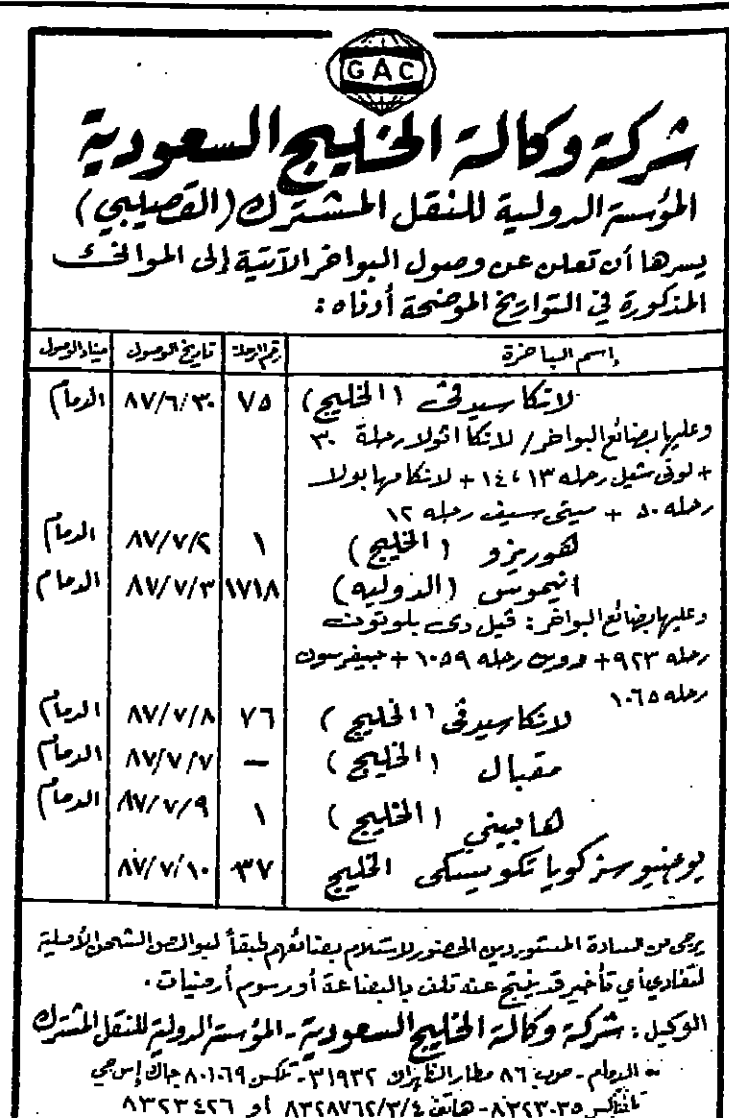 GAC
شركة وكالة الخليج السعودية
المؤسسة الدولية للنقل المشترك (القصيبي)
يسرها أن تعلن عن وصول البواخر الآتية إلى الموانئ
المذكورة في التواريخ الموضحة أدناه :
إسم الباخرة رقم الرحلة تاريخ الوصول ميناء الوصول
لانكا سيدفي (الخليج) ٧٥ ٨٧/٦/٣٠ الدمام
وعليها بضائع البواخر / لانكا اثولا رحلة ٣٠
+ لوتي شيل رحله ١٣ ، ١٤ + لانكا مهابولا
رحله ٥٠ + سيتي سيف رحله ١٢
هوريزو (الخليج) ١ ٨٧/٧/٢ الدمام
انيموس (الدوليه) ١٧١٨ ٨٧/٧/٣ الدمام
وعليها بضائع البواخر : فيل دي بلوتون
رحله ٩٢٣ + رحله ١٠٥٩ + جيفرسون
رحله ١٠٦٥
لانكا سيدفي (الخليج) ٧٦ ٨٧/٧/٨ الدمام
مقبال (الخليج) — ٨٧/٧/٧ الدمام
هابيني (الخليج) ١ ٨٧/٧/٩ الدمام
يوجنيوسز كوياتكويسكي الخليج ٣٧ ٨٧/٧/١٠
يرجى من السادة المستوردين الحضور لاستلام بضائعهم طبقاً لبوالص الشحن الأصلية
لتفادي أي تأخير قد ينتج عنه تلف بالبضاعة أو رسوم أرضيات .
الوكيل : شركة وكالة الخليج السعودية - المؤسسة الدولية للنقل المشترك
الدمام - صوب ٨٦ مطار الظهران ٣١٩٣٢ - تلكس ٨٠١٠٦٩ جاك إس جي
تلفاكس ٨٣٢٣٠٣٥ - هاتف ٨٣٢٨٧٦٢/٣/٤ أو ٨٣٢٣٤٢٦